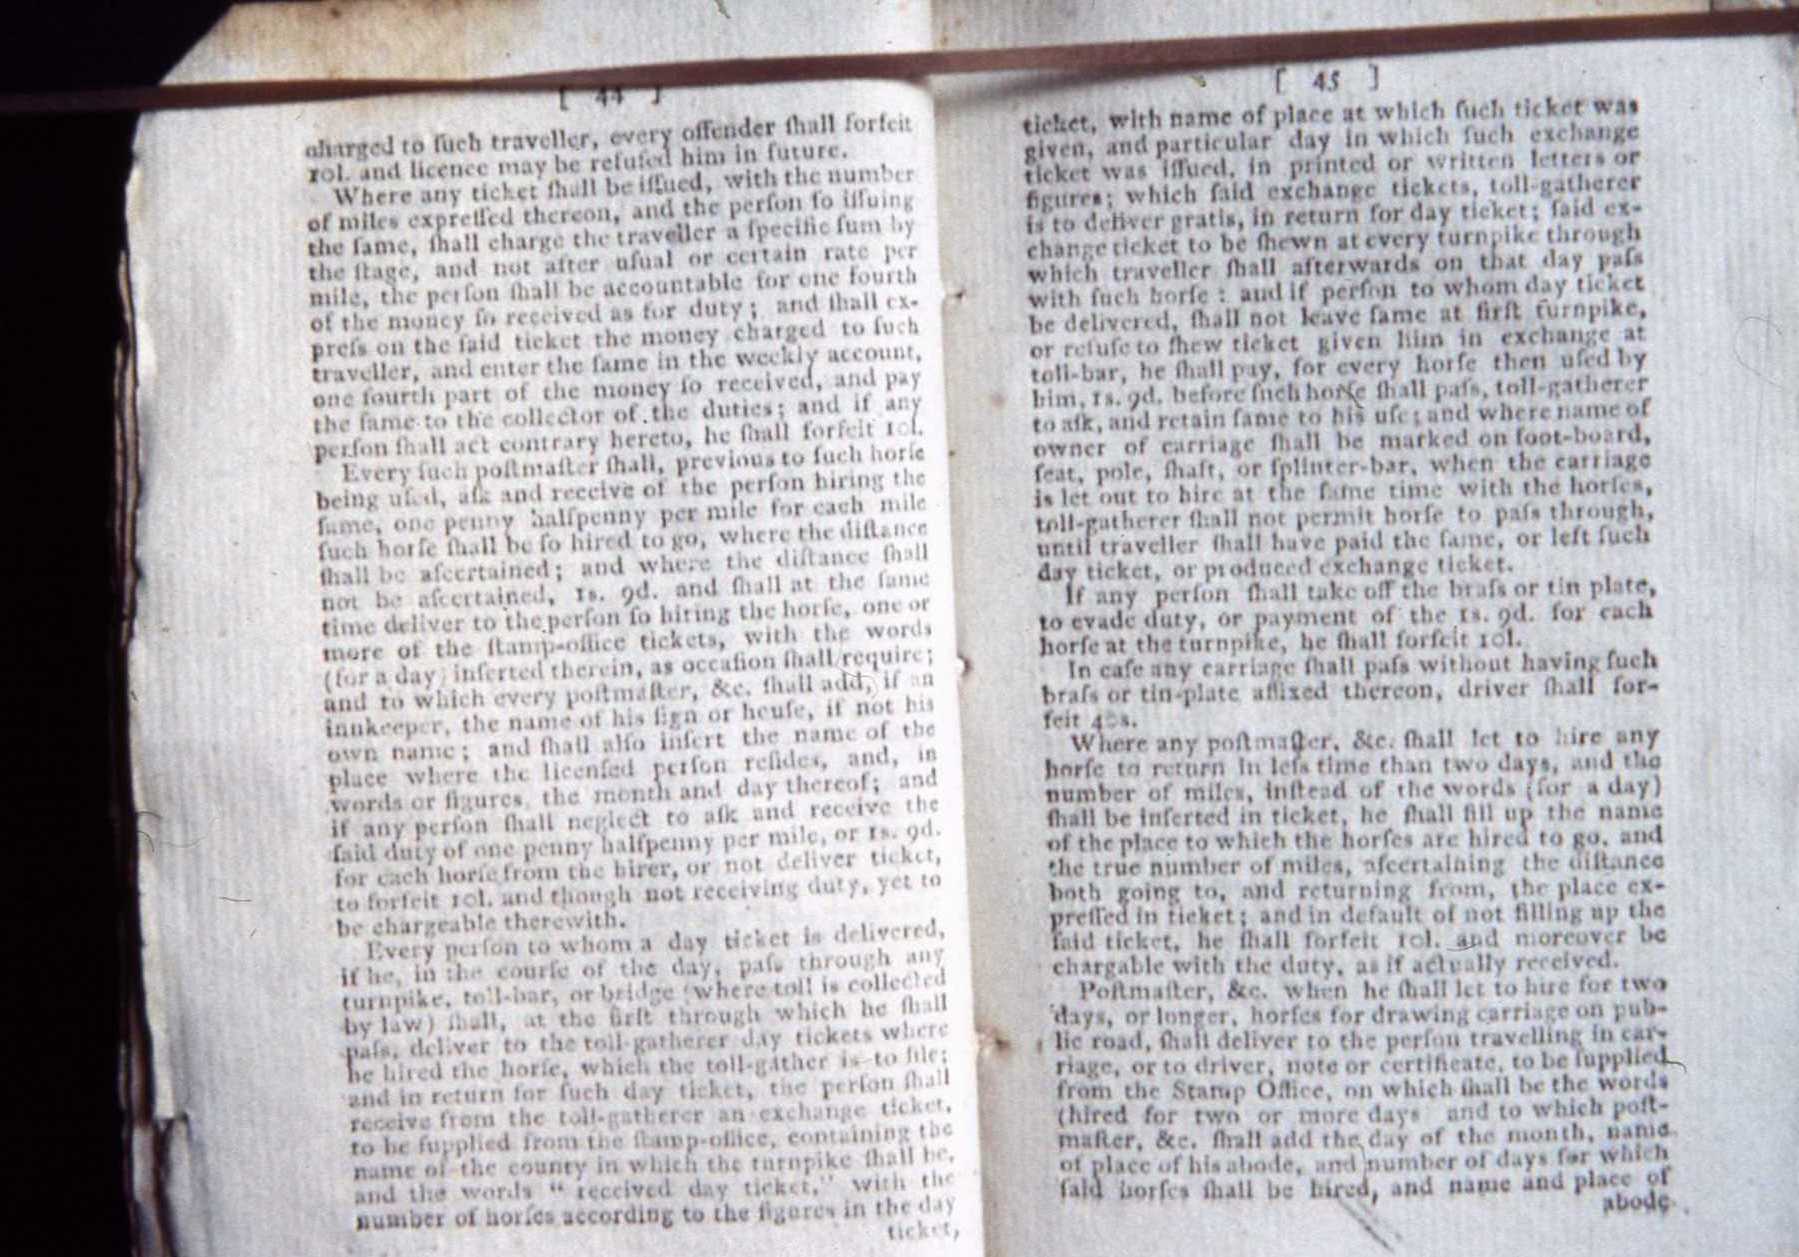 [ 44 ]
charged to ſuch traveller, every offender ſhall forfeit
10l. and licence may be refuſed him in future.
Where any ticket ſhall be iſſued, with the number
of miles expreſſed thereon, and the perſon ſo iſſuing
the ſame, ſhall charge the traveller a ſpecific ſum by
the ſtage, and not after uſual or certain rate per
mile, the perſon ſhall be accountable for one fourth
of the money ſo received as for duty; and ſhall ex-
preſs on the ſaid ticket the money charged to ſuch
traveller, and enter the ſame in the weekly account,
one fourth part of the money ſo received, and pay
the ſame to the collector of the duties; and if any
perſon ſhall act contrary hereto, he ſhall forfeit 10l.
Every ſuch poſtmaſter ſhall, previous to ſuch horſe
being uſed, aſk and receive of the perſon hiring the
ſame, one penny halfpenny per mile for each mile
ſuch horſe ſhall be ſo hired to go, where the diſtance
ſhall be aſcertained; and where the diſtance ſhall
not be aſcertained, 1s. 9d. and ſhall at the ſame
time deliver to the perſon ſo hiring the horſe, one or
more of the ſtamp-office tickets, with the words
(for a day) inſerted therein, as occaſion ſhall require;
and to which every poſtmaſter, &c. ſhall add, if an
innkeeper, the name of his ſign or houſe, if not his
own name; and ſhall alſo inſert the name of the
place where the licenſed perſon reſides, and, in
words or figures, the month and day thereof; and
if any perſon ſhall neglect to aſk and receive the
ſaid duty of one penny halfpenny per mile, or 1s. 9d.
for each horſe from the hirer, or not deliver ticket,
to forfeit 10l. and though not receiving duty, yet to
be chargeable therewith.
Every perſon to whom a day ticket is delivered,
if he, in the courſe of the day, paſs through any
turnpike, toll-bar, or bridge (where toll is collected
by law) ſhall, at the firſt through which he ſhall
paſs, deliver to the toll-gatherer day tickets where
he hired the horſe, which the toll-gather is to file;
and in return for ſuch day ticket, the perſon ſhall
receive from the toll-gatherer an exchange ticket,
to be ſupplied from the ſtamp-office, containing the
name of the county in which the turnpike ſhall be,
and the words "received day ticket," with the
number of horſes according to the figures in the day
ticket,
[ 45 ]
ticket, with name of place at which ſuch ticket was
given, and particular day in which ſuch exchange
ticket was iſſued, in printed or written letters or
figures; which ſaid exchange tickets, toll-gatherer
is to deliver gratis, in return for day ticket; ſaid ex-
change ticket to be ſhewn at every turnpike through
which traveller ſhall afterwards on that day paſs
with ſuch horſe: and if perſon to whom day ticket
be delivered, ſhall not leave ſame at firſt turnpike,
or refuſe to ſhew ticket given him in exchange at
toll-bar, he ſhall pay, for every horſe then uſed by
him, 1s. 9d. before ſuch horſe ſhall paſs, toll-gatherer
to aſk, and retain ſame to his uſe; and where name of
owner of carriage ſhall be marked on foot-board,
ſeat, pole, ſhaft, or ſplinter-bar, when the carriage
is let out to hire at the ſame time with the horſes,
toll-gatherer ſhall not permit horſe to paſs through,
until traveller ſhall have paid the ſame, or left ſuch
day ticket, or produced exchange ticket.
If any perſon ſhall take off the braſs or tin plate,
to evade duty, or payment of the 1s. 9d. for each
horſe at the turnpike, he ſhall forfeit 10l.
In caſe any carriage ſhall paſs without having ſuch
braſs or tin-plate affixed thereon, driver ſhall for-
feit 40s.
Where any poſtmaſter, &c. ſhall let to hire any
horſe to return in leſs time than two days, and the
number of miles, inſtead of the words (for a day)
ſhall be inſerted in ticket, he ſhall fill up the name
of the place to which the horſes are hired to go, and
the true number of miles, aſcertaining the diſtance
both going to, and returning from, the place ex-
preſſed in ticket; and in default of not filling up the
ſaid ticket, he ſhall forfeit 10l. and moreover be
chargable with the duty, as if actually received.
Poſtmaſter, &c. when he ſhall let to hire for two
days, or longer, horſes for drawing carriage on pub-
lic road, ſhall deliver to the perſon travelling in car-
riage, or to driver, note or certificate, to be ſupplied
from the Stamp Office, on which ſhall be the words
(hired for two or more days) and to which poſt-
maſter, &c. ſhall add the day of the month, name
of place of his abode, and number of days for which
ſaid horſes ſhall be hired, and name and place of
abode